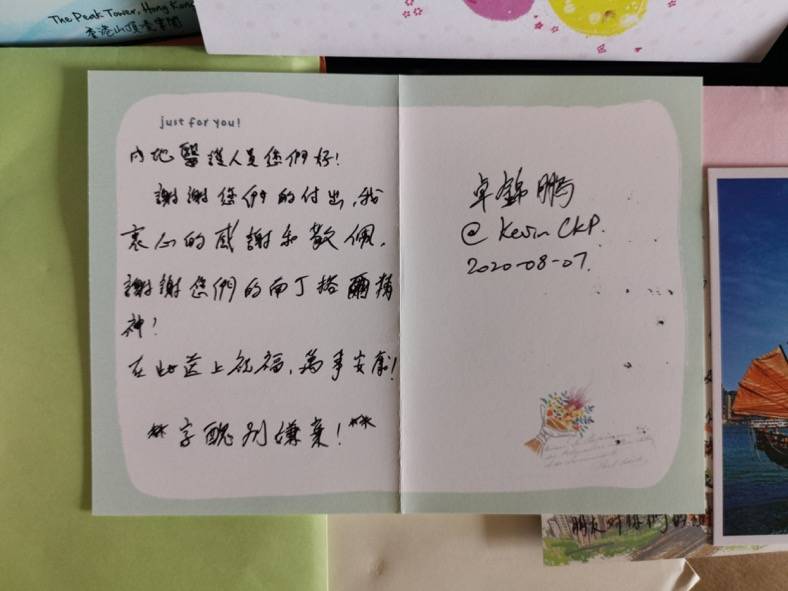 The Peak Tower, Hong Kong
香港山頂凌霄閣
just for you!
內地醫護人員您們好!
謝謝您們的付出,我
衷心的感謝和敬佩,
謝謝您們的南丁格爾精
神!
在此送上祝福,萬事安康!
**字醜別嫌棄!**
卓錦鵬
@ Kevin CKP.
2020-08-07.
朋友對你們的